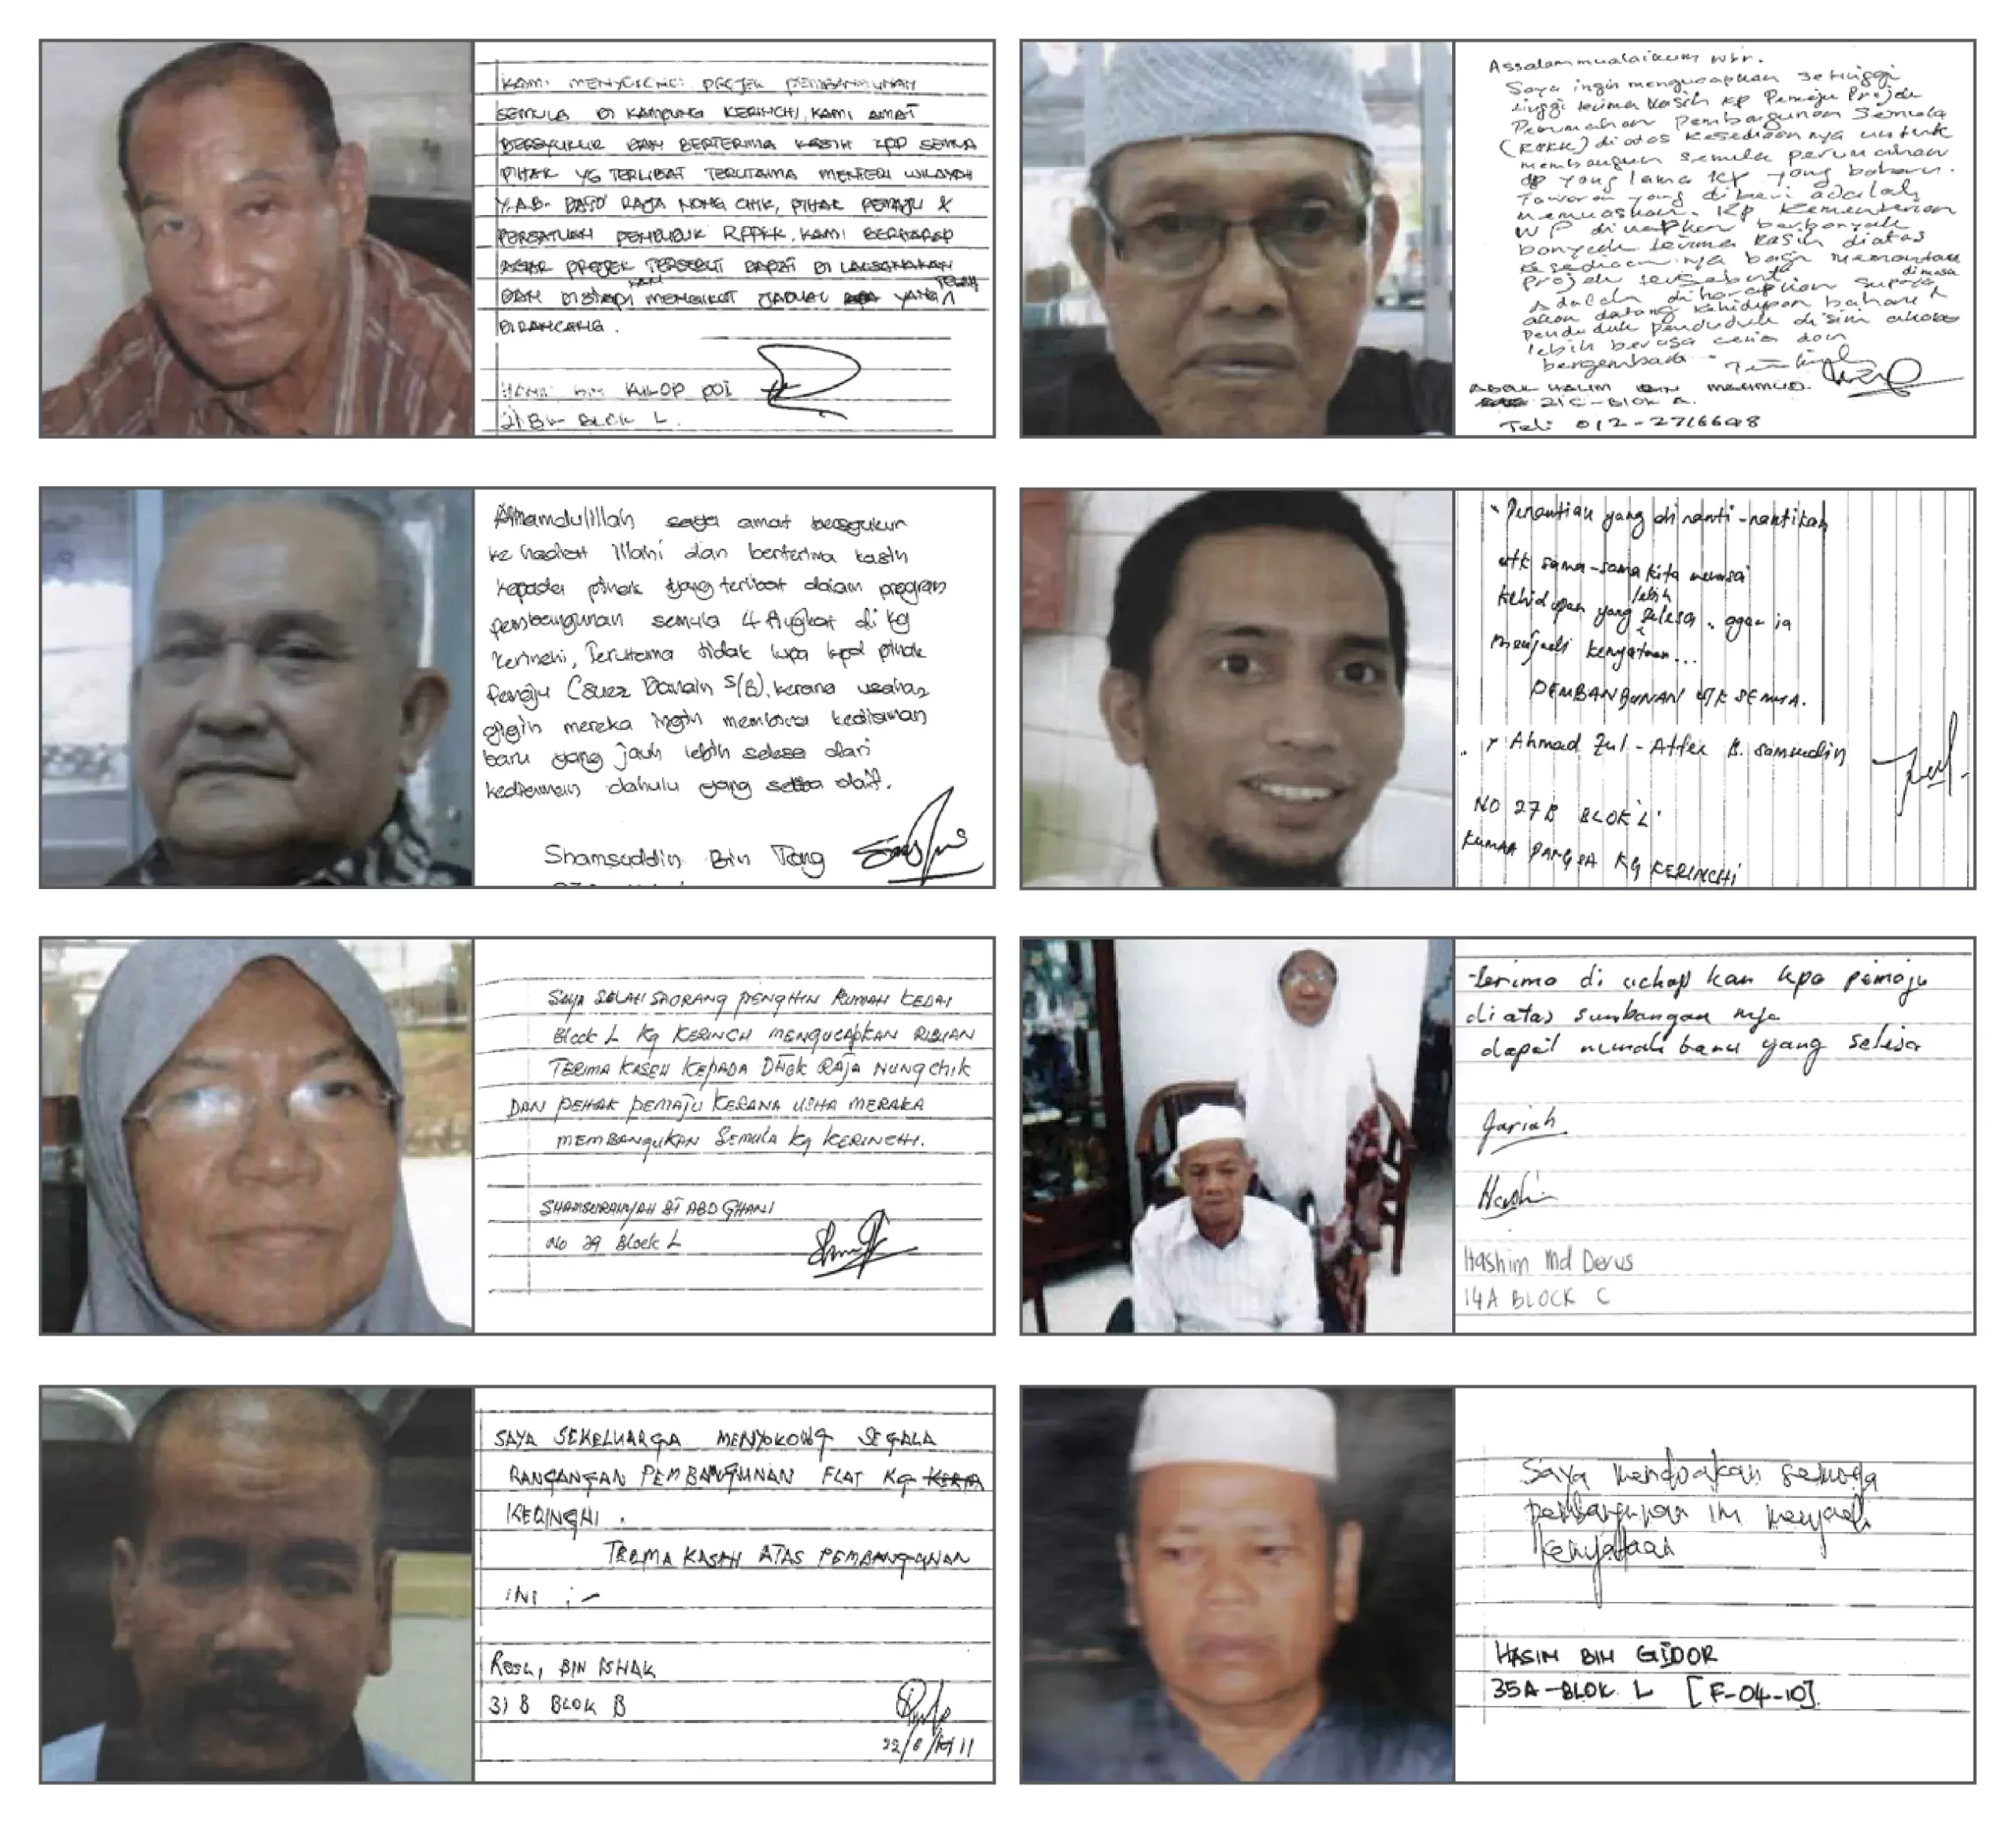 KAMI MENYOKONG PROJEK PEMBANGUNAN
SEMULA DI KAMPUNG KERINCHI, KAMI AMAT
BERSYUKUR DAN BERTERIMA KASIH KPD SEMUA
PIHAK YG TERLIBAT TERUTAMA MENTERI WILAYAH
Y.A.B. DATO' RAJA NONG CHIK, PIHAK PEMAJU &
PERSATUAN PENDUDUK RPPKK. KAMI BERHARAP
AGAR PROJEK TERSEBUT DAPAT DI LAKSANAKAN
DAN DISIAPKAN MENGIKUT JADUAL YANG TELAH
DIRANCANG.
BIN KULOP POI
21 BLOK L.
Assalammualaikum wbr.
Saya ingin mengucapkan setinggi
tinggi terima kasih kp Pemaju Projek
Perumahan Pembangunan Semula
diatas kesediaannya untuk
membangun semula perumahan
yang lama kp yang baharu.
Tawaran yang diberi adalah
memuaskan. Kp Kementerian
WP diucapkan berbanyak
banyak terima kasih diatas
kesediaannya bagi memantau
Projek tersebut.
Adalah diharapkan supaya dimasa
akan datang kehidupan baharu
penduduk penduduk disini akan
lebih berasa ceria dan
bergembira.
ABDUL HALIM BIN MAHMUD.
21C-BLOK A.
Tel: 012-2716648
Alhamdulillah saya amat bersyukur
ke hadrat Illahi dan berterima kasih
kepada pihak yang terlibat dalam program
pembangunan semula 4 tingkat di kg
kerinchi, Terutama tidak lupa kpd pihak
Pemaju (Suez Domain S/B), kerana usaha2
gigih mereka ingin membawa kediaman
baru yang jauh lebih selesa dari
kediaman dahulu yang daif.
Shamsuddin Bin Tong
"Penantian yang di nanti-nantikan
utk sama-sama kita merasai
kehidupan yang lebih selesa. agar ia
menjadi kenyataan...
PEMBANGUNAN U/K SEMUA.
Ahmad Zul-Affer B. Samsudin
NO 27B BLOK L
RUMAH PANGSA KG KERINCHI
SAYA SALAH SAORANG PENGHIN RUMAH KEDAI
Block L Kg KERINCH MENGUCAPKAN RIBUAN
TERIMA KASEH KEPADA DATOK RAJA NUNG CHIK
DAN PEHAK PEMAJU KERANA USHA MERAKA
MEMBANGUKAN SEMULA Kg KERINCHI.
SHAMSURAINYAH BT ABD GHANI
No 29 Block L
terima di uchap kan kpa pemaju
di atas sumbangan nya
dapat rumah baru yang selesa
Jariah
Hashim
Hashim Md Derus
14A BLOCK C
SAYA SEKELUARGA MENYOKONG SEGALA
RANCANGAN PEMBANGUNAN FLAT KG
KERINCHI.
TERIMA KASAH ATAS PEMBANGUNAN
INI :-
ROSLI BIN ISHAK
31 B BLOK B
Saya mendoakan semoga
pembangunan ini menjadi
kenyataan
HASIM BIN GIDOR
35A-BLOK L [F-04-10]